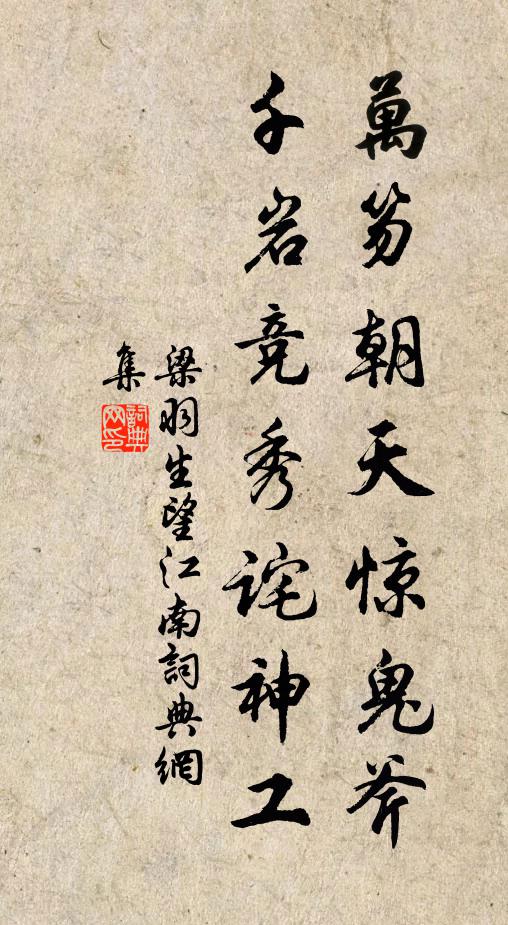 萬笏朝天惊鬼斧
千岩竞秀诧神工
梁羽生望江南詞典網
集
詞典
网印